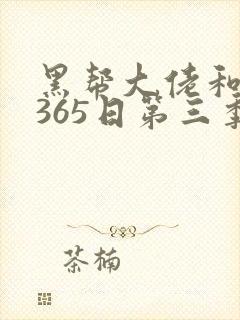 黑帮大佬和
365日第三季
茶楠